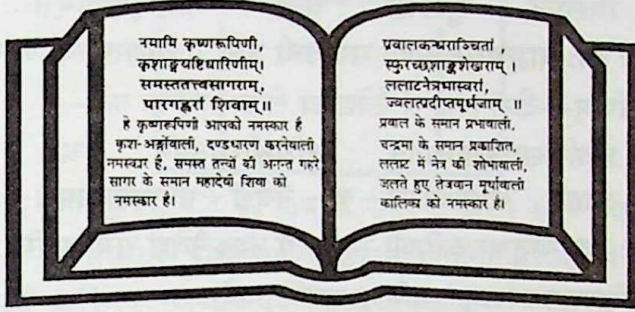 नमामि कृष्णरूपिणी,
कृशाङ्गयष्टिधारिणीम्।
समस्ततत्त्वसागराम्,
पारगह्वरां शिवाम्॥
हे कृष्णरूपिणी आपको नमस्कार है
कृश-अङ्गोंवाली, दण्डधारण करनेवाली
नमस्कार है, समस्त तत्त्वों की अनन्त गहरे
सागर के समान महादेवी शिवा को
नमस्कार है।
प्रवालकन्धराञ्चितां
स्फुरच्छशाङ्कशेखराम् ।
ललाटनेत्रभास्वरां,
ज्वलत्प्रदीप्तमूर्धजाम्॥
प्रवाल के समान प्रभावाली,
चन्द्रमा के समान प्रकाशित,
ललाट में नेत्र की शोभावाली,
जलते हुए तेजवान मूर्धावाली
कालिका को नमस्कार है।